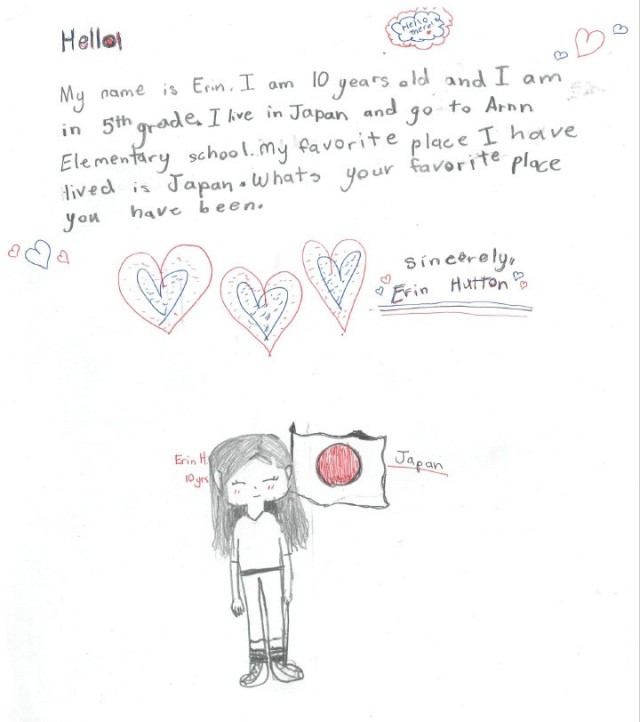 Hello!
Hello there!
My name is Erin. I am 10 years old and I am
in 5th grade. I live in Japan and go to Arnn
Elementary school. My favorite place I have
lived is Japan. Whats your favorite place
you have been.
Sincerely,
Erin Hutton
Erin H.
10 yrs
Japan